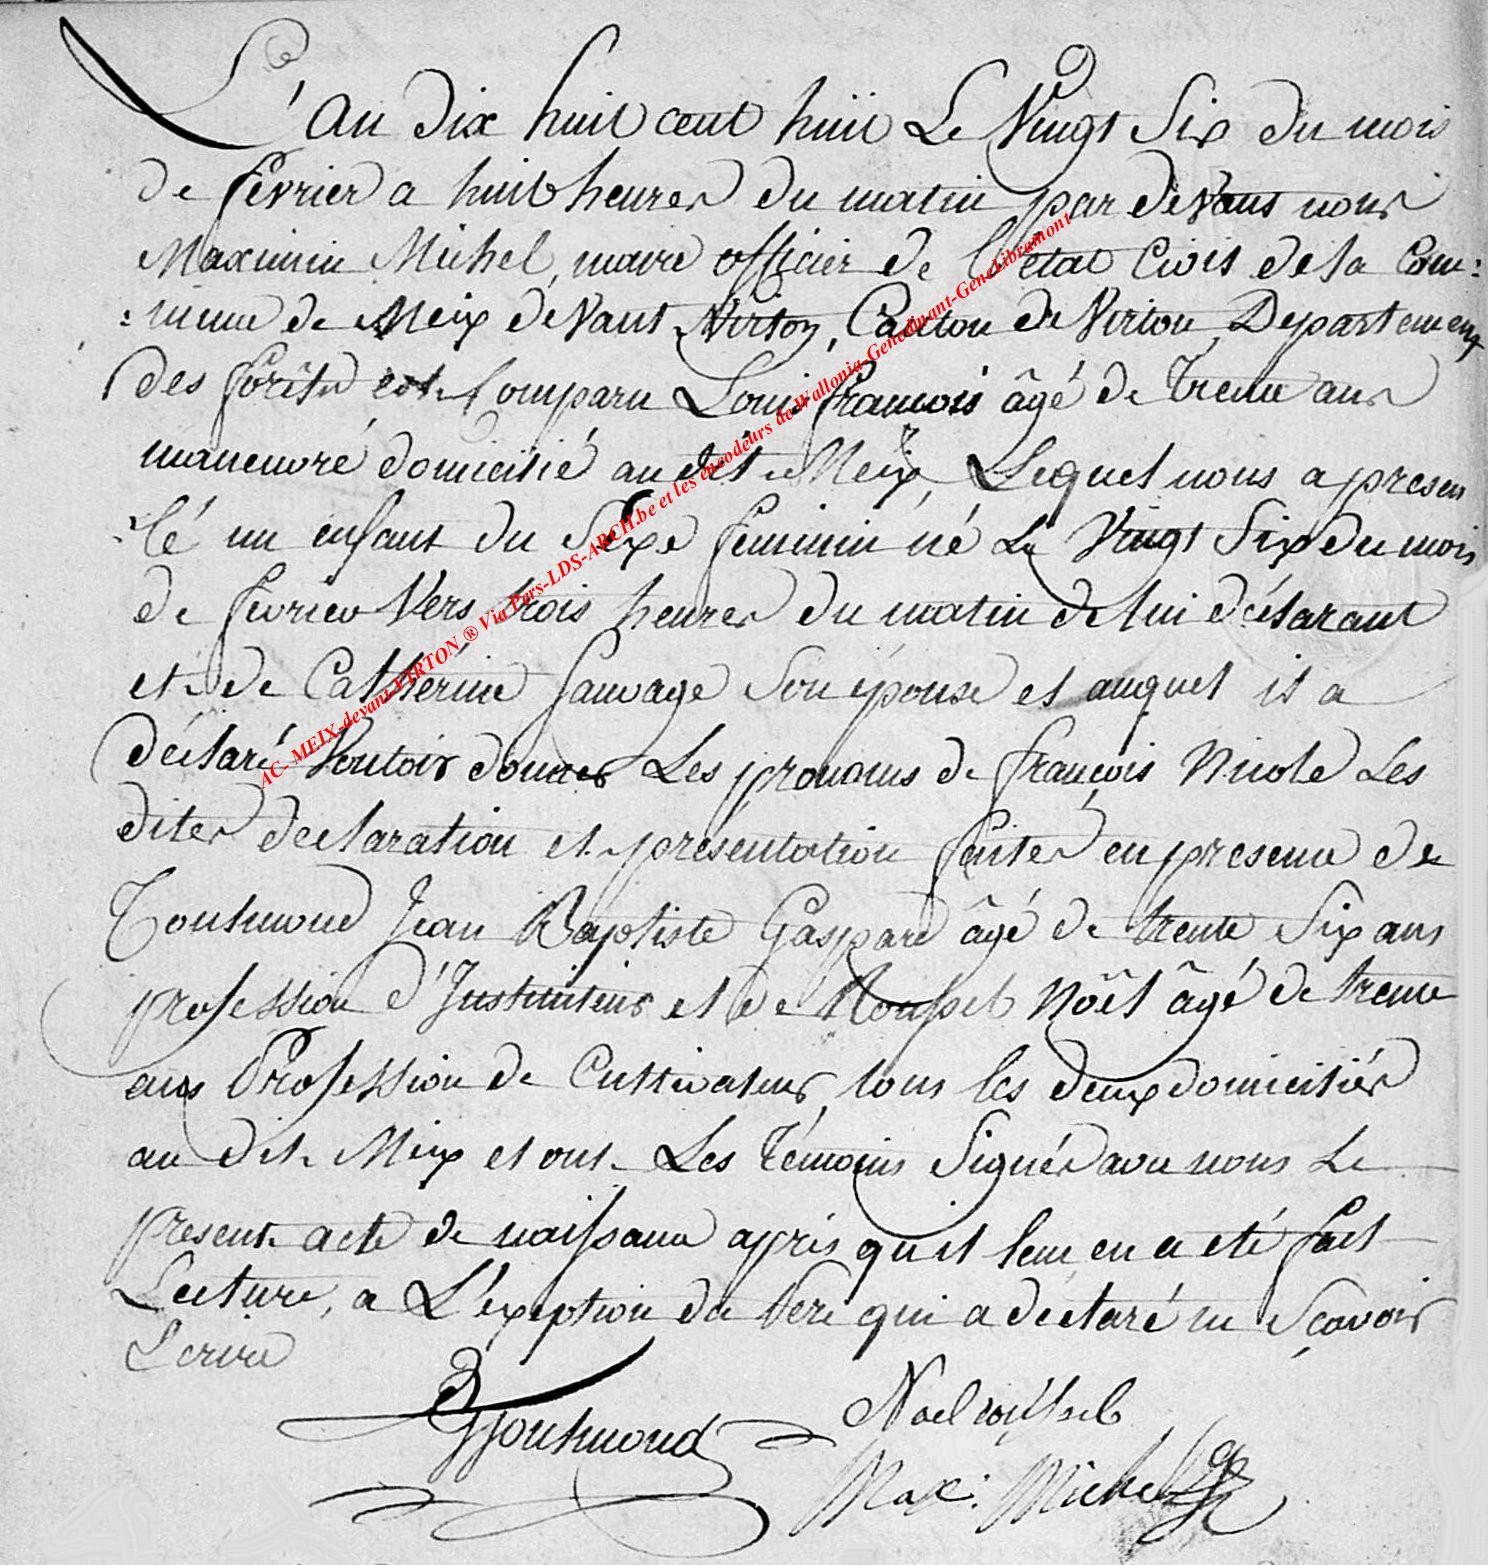 L'An dix huit cent huit Le Vingt Six du mois
de fevrier a huit heures du matin par devant nous
Maximin Michel, maire officier de l'état Civil de la Com:
:mune de Meix devant Virton, Canton de Virton, Departement
des forêts est Comparu Louis françois âgé de Trente ans
manenvré domicilié au dit Meix, Lequel nous a presen
:té un enfant du Sexe feminin né Le Vingt Six du mois
de fevrier Vers trois heures du matin de lui déclarant
et de Cathérine Sauvage Son épouse et auquel il a
déclaré Vouloir donner Les prenoms de françois Nicole Les
dites declaration et présentation faites en presence de
Jean Baptiste Gaspard âgé de trente Six ans
profession d'Instituteur et de Noël âgé de trente
ans Profession de Cultivateur, tous les deux domiciliés
au dit Meix et ont Les Témoins Signés avec nous Le
present acte de naissance après qu'il leur en a eté fait
Lecture, a L'exeption du Pere qui a declaré ne Sçavoir
Ecrire
Noel
Max: Michel
AC- MEIX-devant-VIRTON ® Via Pers-LDS-ARCH.be et les encodeurs de Wallonia-Genedinant-GeneLibramont